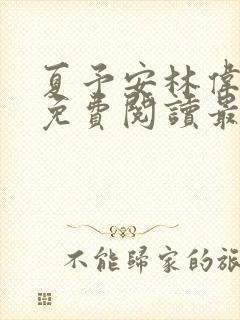 夏予安林偉
免費閱讀最
不能歸家的旅